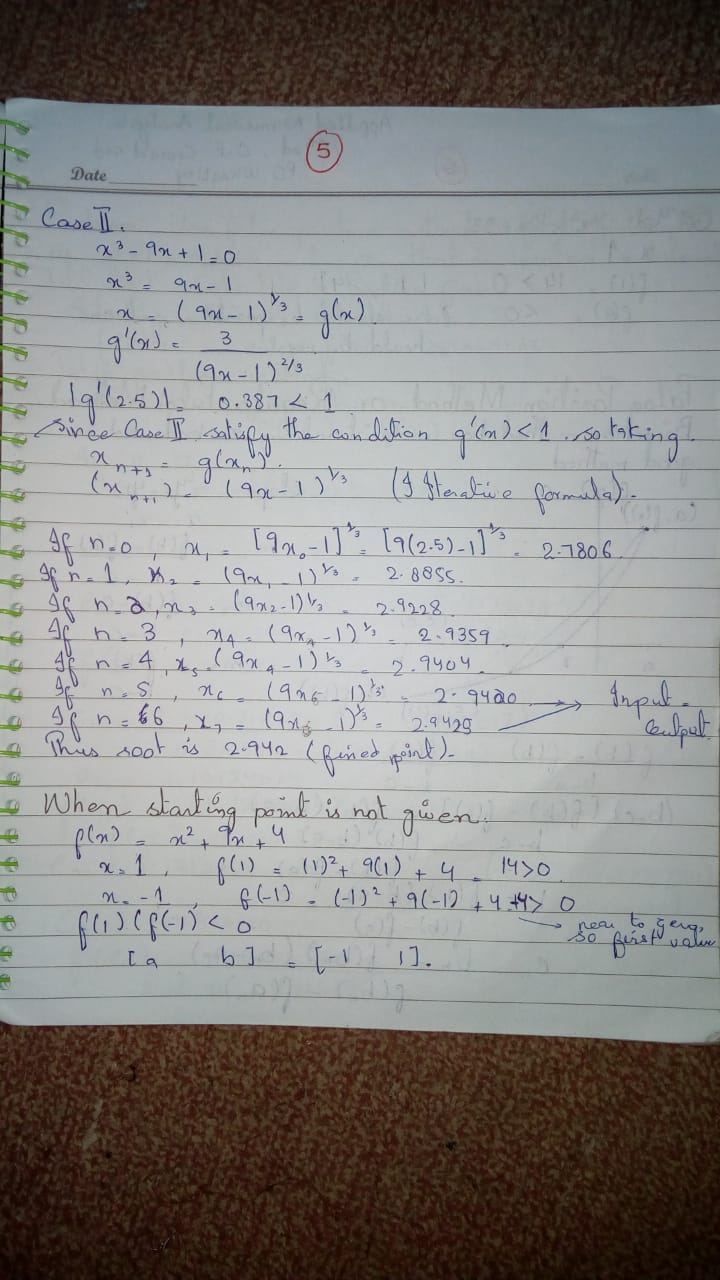 5
Date
Case II.
x³ - 9x + 1 = 0
x³ = 9x - 1
x = (9x - 1)^1/3 = g(x)
g'(x) = 3 / (9x - 1)^2/3
|g'(2.5)| = 0.387 < 1
Since Case II satisfy the condition g'(x) < 1 . so taking.
x_n+1 = g(x_n).
(x_n+1) = (9x - 1)^1/3 (Iterative formula).
If n = 0 , x₁ = [9x₀ - 1]^1/3 = [9(2.5) - 1]^1/3 = 2.7806.
If n = 1, x₂ = (9x₁ - 1)^1/3 = 2.8855.
If n = 2, x₃ = (9x₂ - 1)^1/3 = 2.9228.
If n = 3 , x₄ = (9x₄ - 1)^1/3 = 2.9359
If n = 4 , x₅ = (9x₄ - 1)^1/3 = 2.9404.
If n = 5 , x₆ = (9x₅ - 1)^1/3 = 2.9420 → Input =
If n = 6 , x₇ = (9x₆ - 1)^1/3 = 2.9425 Output.
Thus root is 2.942 (fixed point).
When starting point is not given.
f(x) = x² + 9x + 4
x = 1 , f(1) = (1)² + 9(1) + 4 = 14 > 0
x = -1 , f(-1) = (-1)² + 9(-1) + 4 > 0
f(1) (f(-1) < 0 → near to zero,
so first value
[a b] = [-1 1].